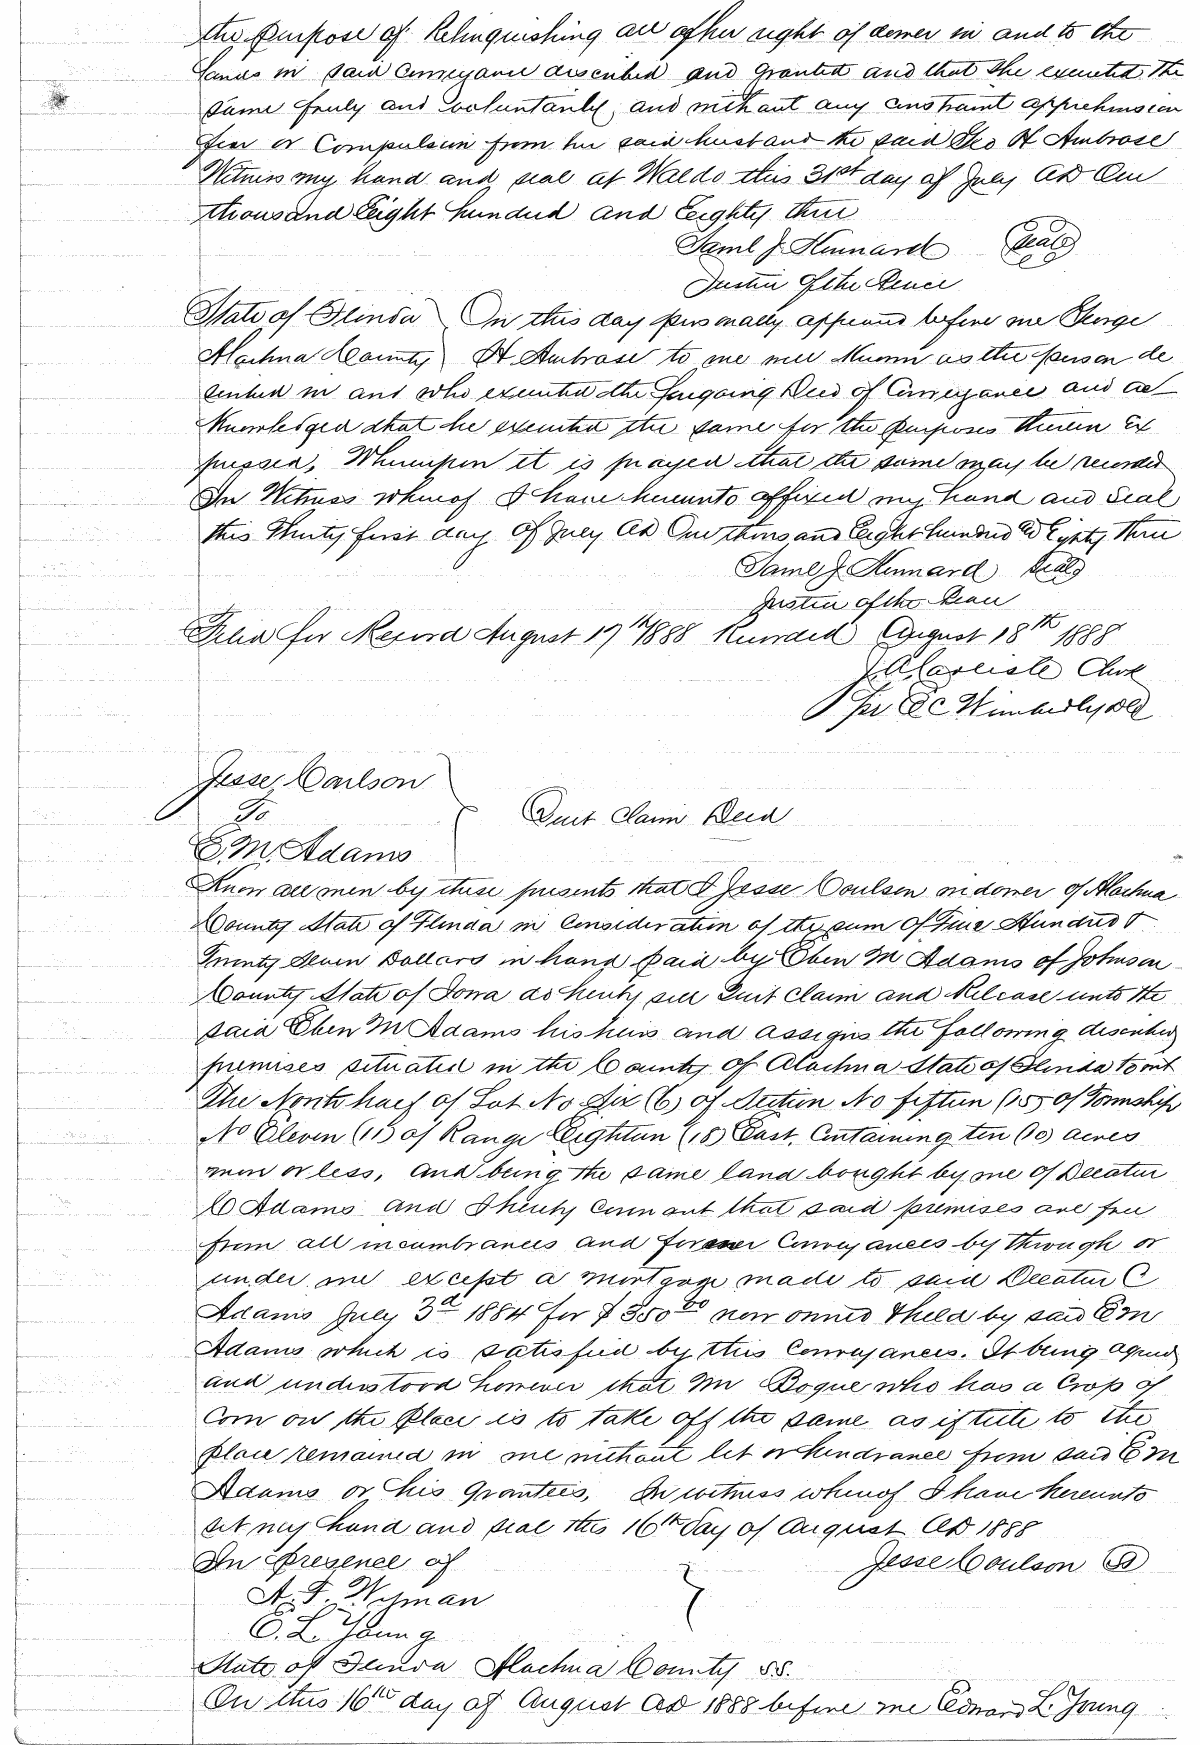 the purpose of Relinquishing all of her right of dower in and to the
Lands in said Conveyance described and granted and that she executed the
same freely and voluntarily, and without any constraint apprehension
fear or Compulsion from her said husband the said Geo H Ambrose
Witness my hand and seal at Waldo this 31st day of July AD One
thousand Eight hundred and Eighty three
Saml J. Kennard (Seal)
Justice of the Peace
State of Florida } On this day personally appeared before me George
Alachua County } H Ambrose to me well Known as the person de
scribed in and who executed the foregoing Deed of Conveyance and ac
Knowledged that he executed the same for the purposes therein Ex
pressed, Whereupon it is prayed that the same may be recorded
In Witness whereof I have hereunto affixed my hand and Seal
this Thirty first day of July AD One thousand Eight hundred & Eighty three
Saml J. Kennard Seal
Justice of the Peace
Filed for Record August 17th 1888 Recorded August 18th 1888
J. A. Carlisle Clerk
Per E C Wimberly DC
Jesse Coulson
To
Quit Claim Deed
E. M. Adams
Know all men by these presents that I Jesse Coulson widower of Alachua
County State of Florida in Consideration of the sum of Five Hundred &
Twenty Seven Dollars in hand paid by Eben M Adams of Johnson
County State of Iowa do hereby sell Quit Claim and Release unto the
said Eben M Adams his heirs and assigns the following described
premises situated in the County of Alachua State of Florida to wit
The North half of Lot No Six (6) of Section No fifteen (15) of Township
No Eleven (11) of Range Eighteen (18) East. Containing ten (10) acres
more or less, and being the same land bought by me of Decatur
C Adams and I hereby Covenant that said premises are free
from all incumbrances and former Conveyances by through or
under me except a mortgage made to said Decatur C
Adams July 3d 1884 for $350 00 now owned & held by said E M
Adams which is satisfied by this Conveyances. It being agreed
and understood however that Mr Bogue who has a Crop of
Corn on the place is to take off the same as if title to the
place remained in me without let or hindrance from said E M
Adams or his grantees, In witness whereof I have hereunto
set my hand and seal this 16th day of August AD 1888
In Presence of Jesse Coulson
A. F. Wyman
E. L. Young
State of Florida Alachua County S.S.
On this 16th day of August AD 1888 before me Edward L. Young